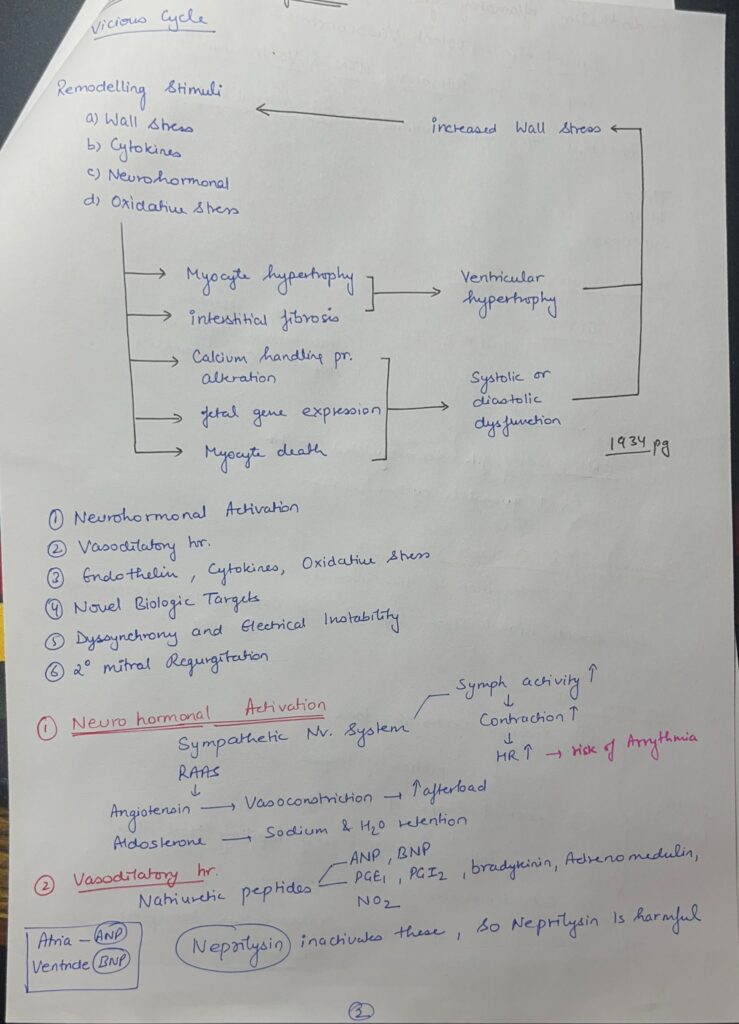 Vicious Cycle
Remodelling Stimuli
a) Wall Stress
b) Cytokines
c) Neurohormonal
d) Oxidative Stress
increased Wall Stress
Myocyte hypertrophy
interstitial fibrosis
Ventricular
hypertrophy
Calcium handling pr.
alteration
fetal gene expression
Myocyte death
Systolic or
diastolic
dysfunction
1934 pg
① Neurohormonal Activation
② Vasodilatory hr.
③ Endothelin, Cytokines, Oxidative Stress
④ Novel Biologic Targets
⑤ Dyssynchrony and Electrical Instability
⑥ 2° mitral Regurgitation
① Neuro hormonal Activation
Sympathetic Nv. System
Symph activity ↑
↓
Contraction ↑
↓
HR ↑ → risk of Arrythmia
RAAS
↓
Angiotensin → Vasoconstriction → ↑ afterload
Aldosterone → Sodium & H2O retention
② Vasodilatory hr.
Natriuretic peptides
ANP, BNP
PGE1, PGI2, bradykinin, Adrenomedulin,
NO2
Atria - ANP
Ventricle BNP
Neprilysin inactivates these, so Neprilysin is harmful
③